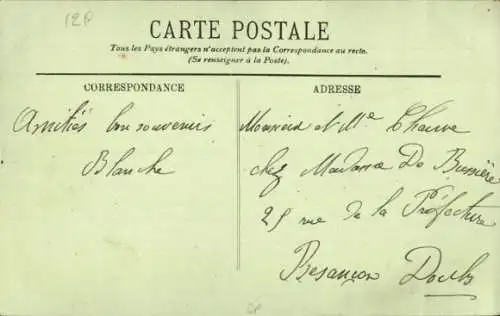 12P
CARTE POSTALE
Tous les Pays étrangers n'acceptent pas la Correspondance au recto.
(Se renseigner à la Poste).
CORRESPONDANCE
Amitiés bon souvenirs
Blanche
ADRESSE
Monsieur et Mme
chez Madame De Bussière
25 rue de la Préfecture
Besançon Doubs